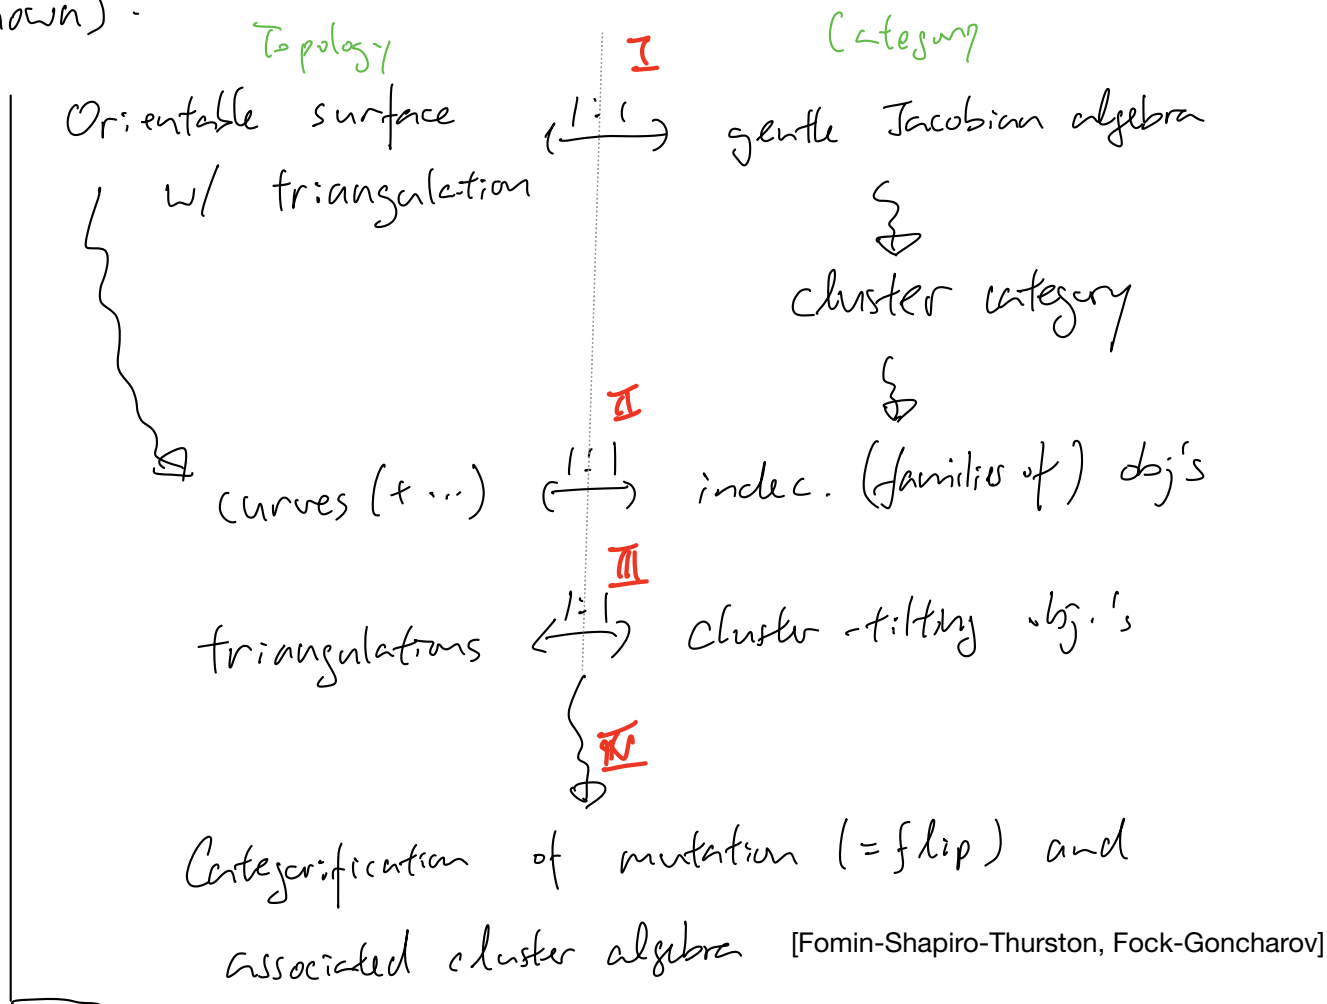 nown).
Topology I Category
Orientable surface 1:1 gentle Jacobian algebra
w/ triangulation
cluster category
II
curves (+ ...) 1:1 indec. (families of) obj's
III
triangulations 1:1 cluster-tilting obj.'s
IV
Categorification of mutation (= flip) and
associated cluster algebra [Fomin-Shapiro-Thurston, Fock-Goncharov]